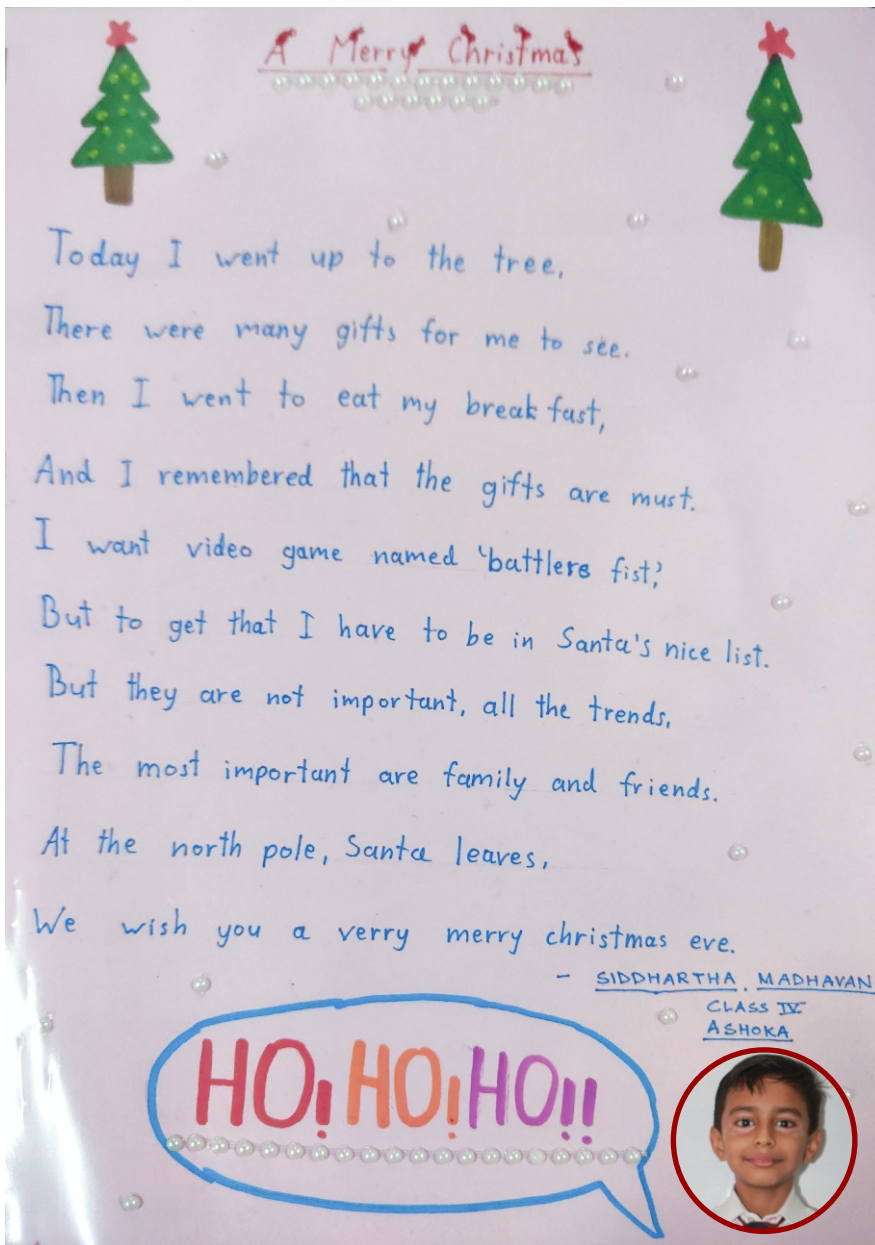 A Merry Christmas
Today I went up to the tree,
There were many gifts for me to see.
Then I went to eat my break fast,
And I remembered that the gifts are must.
I want video game named 'battlers fist,'
But to get that I have to be in Santa's nice list.
But they are not important, all the trends,
The most important are family and friends.
At the north pole, Santa leaves,
We wish you a verry merry christmas eve.
- SIDDHARTHA. MADHAVAN
CLASS IV
ASHOKA
HO! HO! HO!!